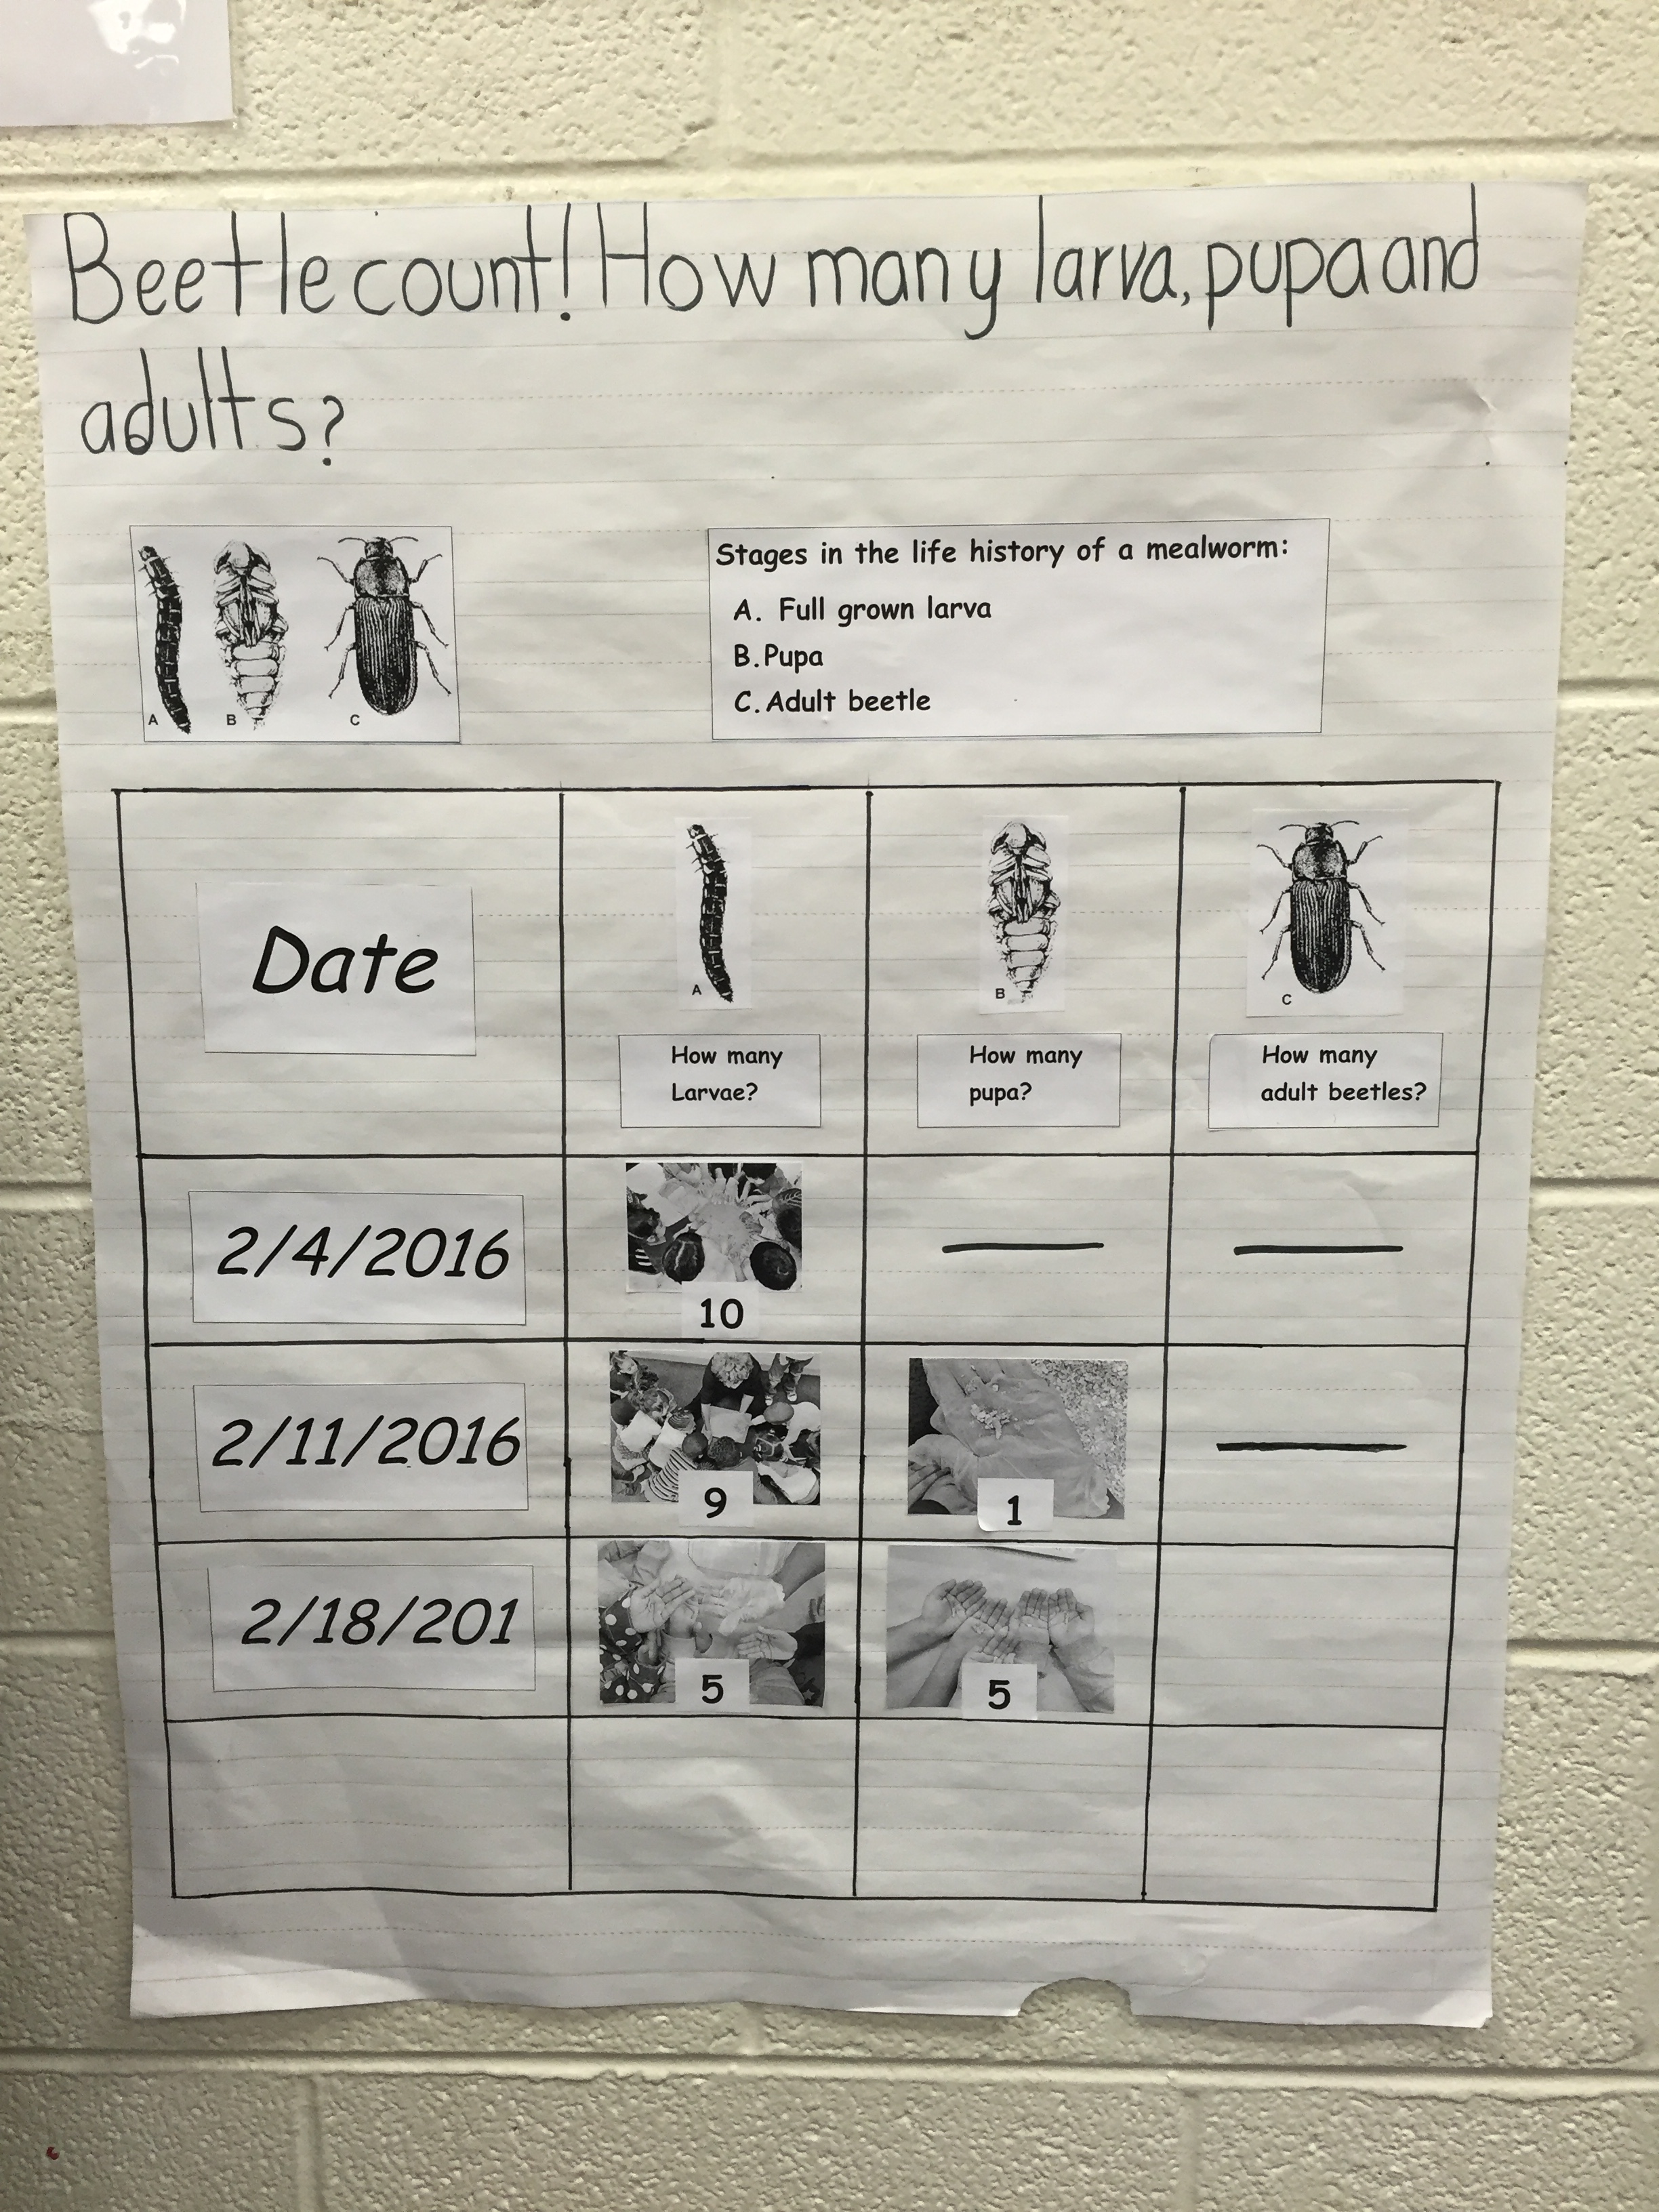 Beetle count! How many larva, pupa and
adults?
A B C
Stages in the life history of a mealworm:
A. Full grown larva
B. Pupa
C. Adult beetle
Date
A
How many
Larvae?
B
How many
pupa?
C
How many
adult beetles?
2/4/2016
10
2/11/2016
9
1
2/18/201
5
5